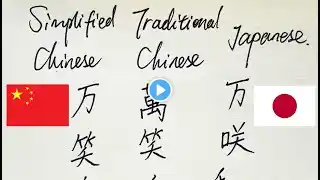 Simplified Traditional Japanese.
Chinese Chinese
万 萬 万
笑 笑 咲